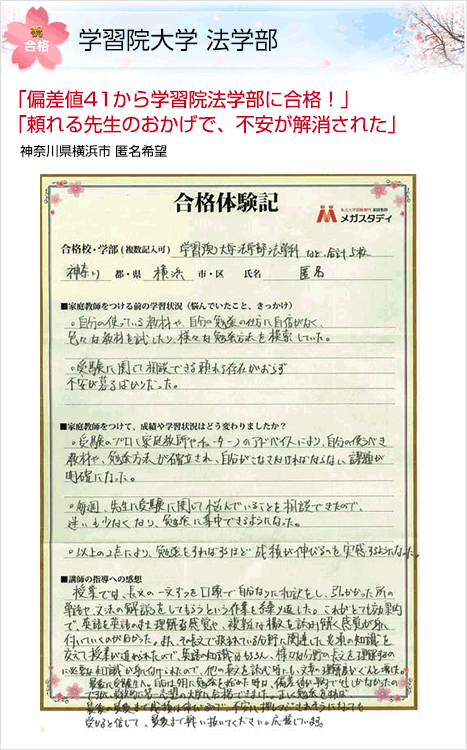 合格
学習院大学 法学部
「偏差値41から学習院法学部に合格！」
「頼れる先生のおかげで、不安が解消された」
神奈川県横浜市 匿名希望
合格体験記
メガスタディ
合格校・学部（複数記入可） 学習院大学法学部法学科 など、合計5校
神奈川 都・県 横浜 市・区 氏名 匿名
■家庭教師をつける前の学習状況（悩んでいたこと、きっかけ）
○自分の使っている教材や、自分の勉強の仕方に自信がなく、
色々な教材を試したり、様々な勉強方法を模索していた。
○受験に関して相談できる頼れる存在がおらず
不安が募るばかりだった。
■家庭教師をつけて、成績や学習状況はどう変わりましたか？
○受験のプロ（家庭教師やチューター）のアドバイスにより、自分の使うべき
教材や、勉強方法が確立され、自分がこなさなければならない課題が
明確になった。
○毎週、先生に受験に関して悩んでいることを相談できたので、
迷いも少なくなり、勉強に集中できるようになった。
○以上の2点により、勉強をすればするほど成績が伸びるのを実感するようになった。
■講師の指導への感想
授業では、長文の一文ずつを口頭で自分なりに和訳をし、引っかかった所の
単語や、文法の解説をしてもらうという作業を繰り返した。これがとても効果的
で、英語を英語のまま理解する感覚や、複雑な構文を読み解く感覚が身に
付いていくのが分かった。また、その長文で扱われている分野に関連した、必須の知識を
交えて授業が進められたので、英語の知識はもちろん、様々な分野の長文を理解するの
に必要な知識が身に付けられたので、他の長文を読む時にも、文章の理解度がぐんと増した。